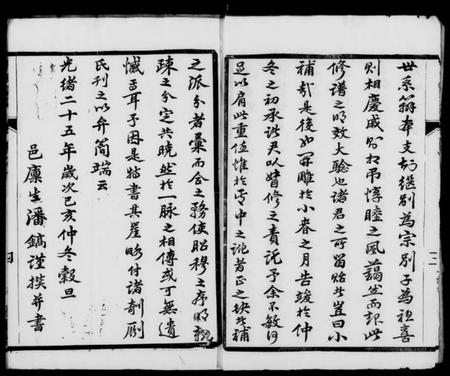 世系翁奉支初繼別為宗別子為祖喜
則相慶戚則相弔惇睦之風藹然而起此
修譜之明效大驗也諸君之所留貽者豈曰小
補哉是後始於小春之月告竣於仲
冬之初承諸君以督修之責託予余不敏何
足以肩此重任惟於局中之訛者正之缺者補
之派分者彙而合之務使昭穆之序明親
疎之分定共曉然於一脈之相傳或可無遺
憾云耳予因是帖書其崖略付諸剞劂
氏刊之以弁簡端云
光緒二十五年歲次己亥仲冬穀旦
邑廩生潘鎬謹撰并書